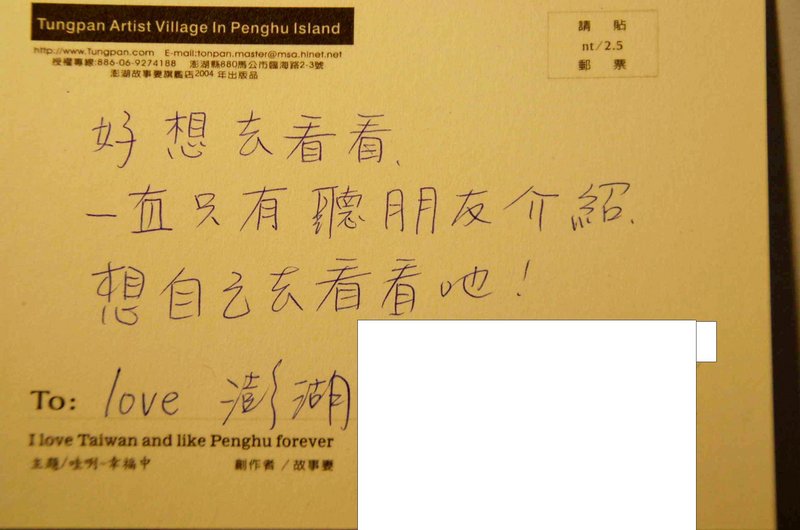 Tungpan Artist Village In Penghu Island
http://www.Tungpan.com E-mail:tonpan.master@msa.hinet.net
授權專線:886-06-9274188 澎湖縣880馬公市國海路2-3號
澎湖故事妻旗艦店2004年出版品
請貼
nt/2.5
郵票
好想去看看、
一直只有聽朋友介紹、
想自己去看看吔！
To: love 澎湖
I love Taiwan and like Penghu forever
主題/哇咧-幸福中 創作者/故事妻